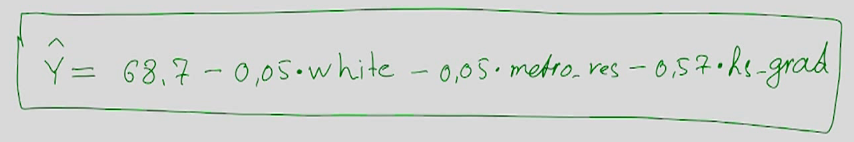 Ŷ = 68.7 - 0,05·white - 0,05·metro_res - 0,57·hs_grad